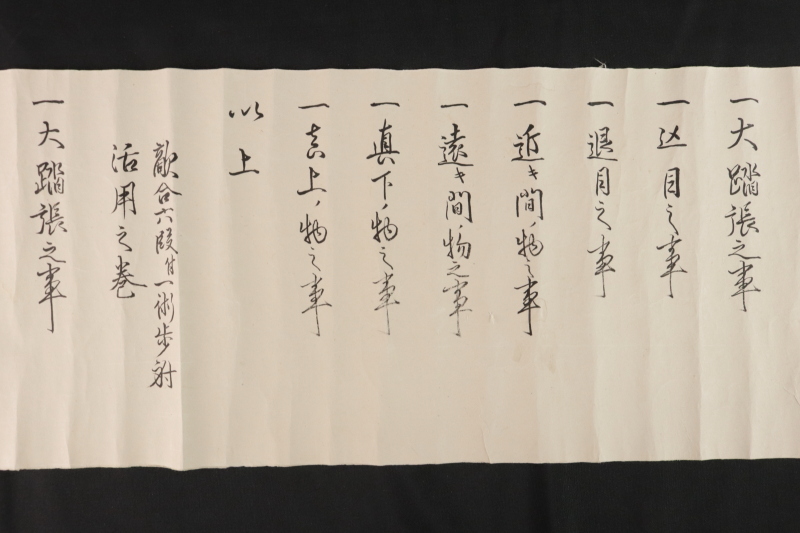 一大踏張之事
一込目之事
一退目之事
一近キ間ノ物之事
一遠キ間ノ物之事
一真下ノ物之事
一真上ノ物之事
以上
敵合六段目一術歩射
活用之巻
一大踏張之事